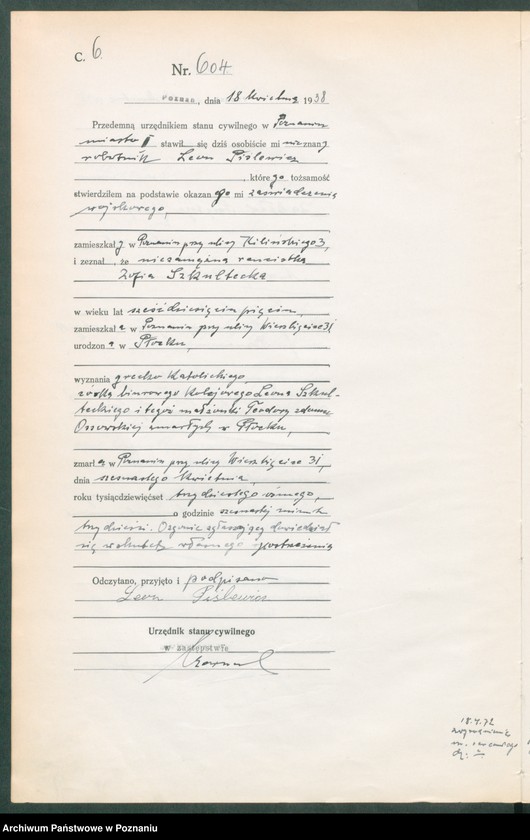 C. 6
Nr. 604
Poznań, dnia 18 kwietnia 1938
Przedemną urzędnikiem stanu cywilnego w Poznaniu
miasto stawił się dziś osobiście mi nieznany
robotnik Leon Piślewicz
którego tożsamość
stwierdziłem na podstawie okazanego mi zaświadczenia
wojskowego,
zamieszkały w Poznaniu przy ulicy Kilińskiego 3,
i zeznał, że niezamężna rencistka
Zofia Szkultecka
w wieku lat sześćdziesięciu pięciu,
zamieszkała w Poznaniu przy ulicy Wierzbięcice 31
urodzona w Płocku,
wyznania grecko katolickiego,
córka biurowego kolejowego Leona Szkul-
teckiego i tegoż małżonki Teodory z domu
Ossowskiej zmarłych w Płocku,
zmarła w Poznaniu przy ulicy Wierzbięcice 31,
dnia szesnastego kwietnia,
roku tysiącdziewięćset trzydziestego ósmego,
o godzinie szesnastej minut
trzydzieści. Ogłaszający dowiedział
się wskutek własnego spostrzeżenia
Odczytano, przyjęto i podpisano
Leon Piślewicz
Urzędnik stanu cywilnego
w zastępstwie
18.4.72
Archiwum Państwowe w Poznaniu